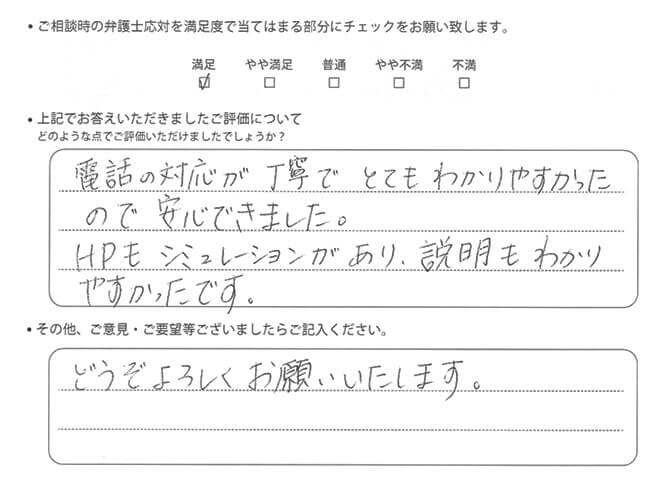 ・ご相談時の弁護士応対を満足度で当てはまる部分にチェックをお願い致します。
満足 やや満足 普通 やや不満 不満
・上記でお答えいただきましたご評価について
どのような点でご評価いただけましたでしょうか？
電話の対応が丁寧でとてもわかりやすかった
ので安心できました。
HPもシミュレーションがあり、説明もわかり
やすかったです。
・その他、ご意見・ご要望等ございましたらご記入ください。
どうぞよろしくお願いいたします。